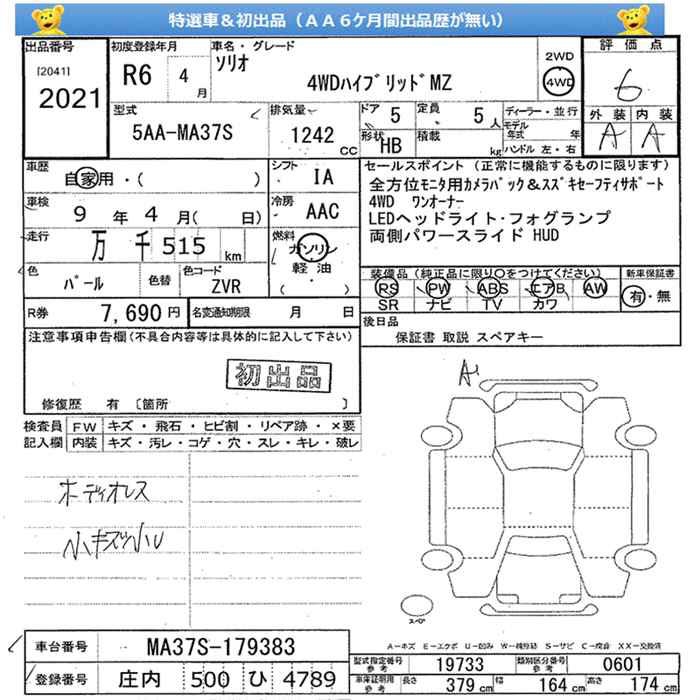 特選車＆初出品（ＡＡ６ケ月間出品歴が無い）
出品番号
[2041]
2021
初度登録年月
R6 4月
車名・グレード
ソリオ
4WDハイブリッドMZ
2WD
4WD
評価点
6
外装 内装
A A
型式
5AA-MA37S
排気量
1242 CC
ドア 5
定員 5人
形状 HB
積載 kg
ディーラー・並行
モデル年式 年
ハンドル 左・右
車歴
自家用・( )
シフト IA
車検
9年4月( 日)
冷房 AAC
走行
万千515km
燃料
ガソリン
軽油
( )
色
パール
色替
色コード
ZVR
R券 7,690円
名変通知期限 月 日
セールスポイント（正常に機能するものに限ります）
全方位モニタ用カメラパック＆スズキセーフティサポート
4WD ワンオーナー
LEDヘッドライト・フォグランプ
両側パワースライド HUD
装備品（純正品に限り○をつけてください）
PS PW ABS エアB AW
SR ナビ TV カワ
新車保証書
有・無
後日品
保証書 取説 スペアキー
注意事項申告欄(不具合内容等は具体的に記入して下さい)
初出品
修復歴 有〔箇所 〕
検査員記入欄
FW キズ・飛石・ヒビ割・リペア跡・×要
内装 キズ・汚レ・コゲ・穴・スレ・キレ・破レ
ボディオレス
小キズ小U
A1
スペア
A-キズ E-エクボ U-凹み W-補修跡 S-サビ C-腐食 XX-交換済
車台番号 MA37S-179383
登録番号 庄内 500 ひ 4789
型式指定番号 参考 19733
類別区分番号 参考 0601
車庫証明用 参考
長さ 379cm 幅 164cm 高さ 174cm